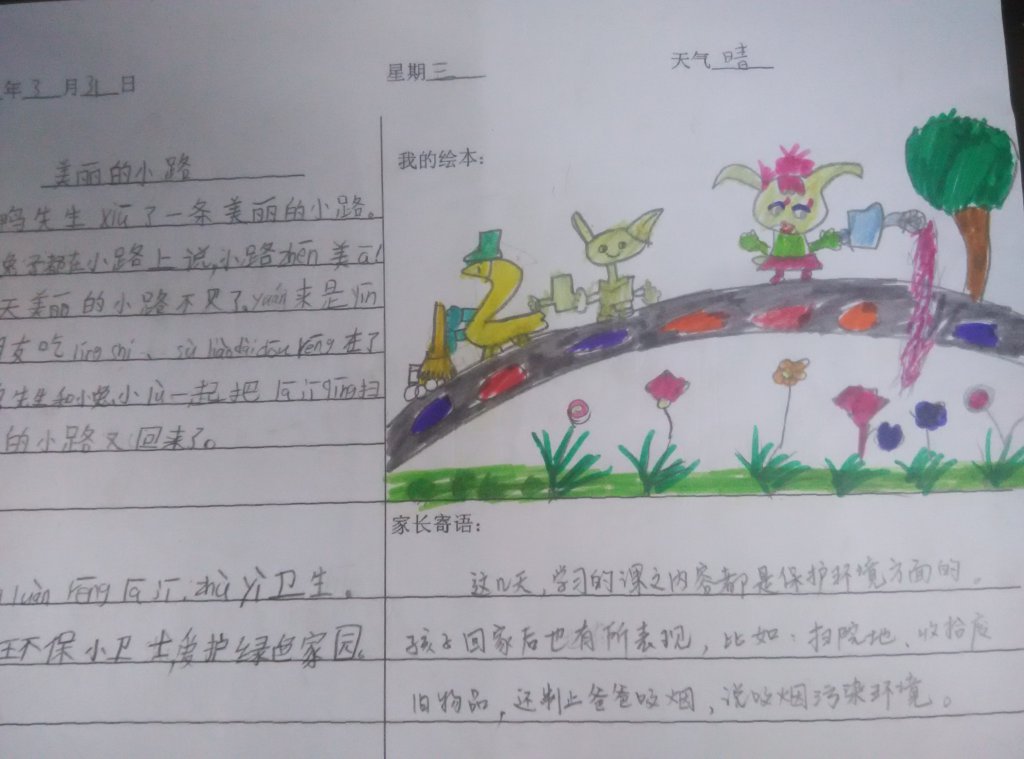 年3月31日
星期三
天气晴
美丽的小路
先生xiū了一条美丽的小路。
兔子都在小路上说,小路zhēn美a!
天美丽的小路不见了。yuán来是yīn
朋友吃líng shí、sù liào dài dōu rēng在了
先生和小兔、小lù一起把lā jī qīng扫
的小路又回来了。
luàn rēng lā jī,zhù yì卫生。
环保小卫士,爱护绿色家园。
我的绘本:
家长寄语:
这几天,学习的课文内容都是保护环境方面的。
孩子回家后也有所表现,比如:扫院地、收拾废
旧物品,还制止爸爸吸烟,说吸烟污染环境。